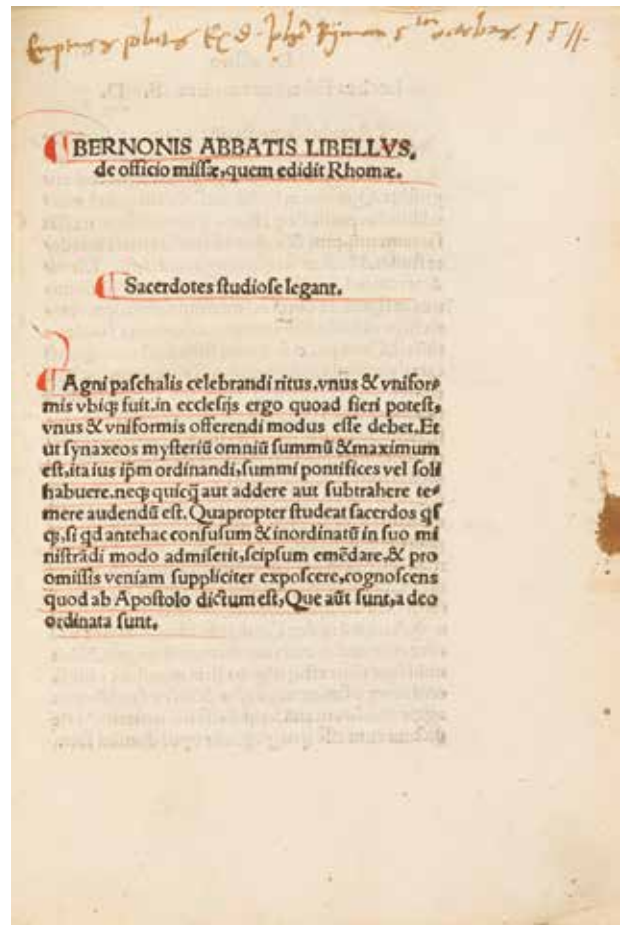 Emptus &
¶ BERNONIS ABBATIS LIBELLVS,
de officio missæ, quem edidit Rhomæ.
¶ Sacerdotes studiose legant.
¶ Agni paschalis celebrandi ritus, vnus & vnifor⸗
mis vbiqȝ fuit. in ecclesijs ergo quoad fieri potest,
vnus & vniformis offerendi modus esse debet. Et
ut synaxeos mysteriū omniū summū & maximum
est, ita ius ip̄m ordinandi, summi pontifices vel soli
habuere. neqȝ quicq̄ aut addere aut subtrahere te⸗
mere audendū est. Quapropter studeat sacerdos qs
qȝ, si qd antehac confusum & inordinatū in suo mi
nistrādi modo admiserit, seipsum emēdare, & pro
omissis veniam suppliciter exposcere, cognoscens
quod ab Apostolo dictum est, Que aūt sunt, a deo
ordinata sunt.